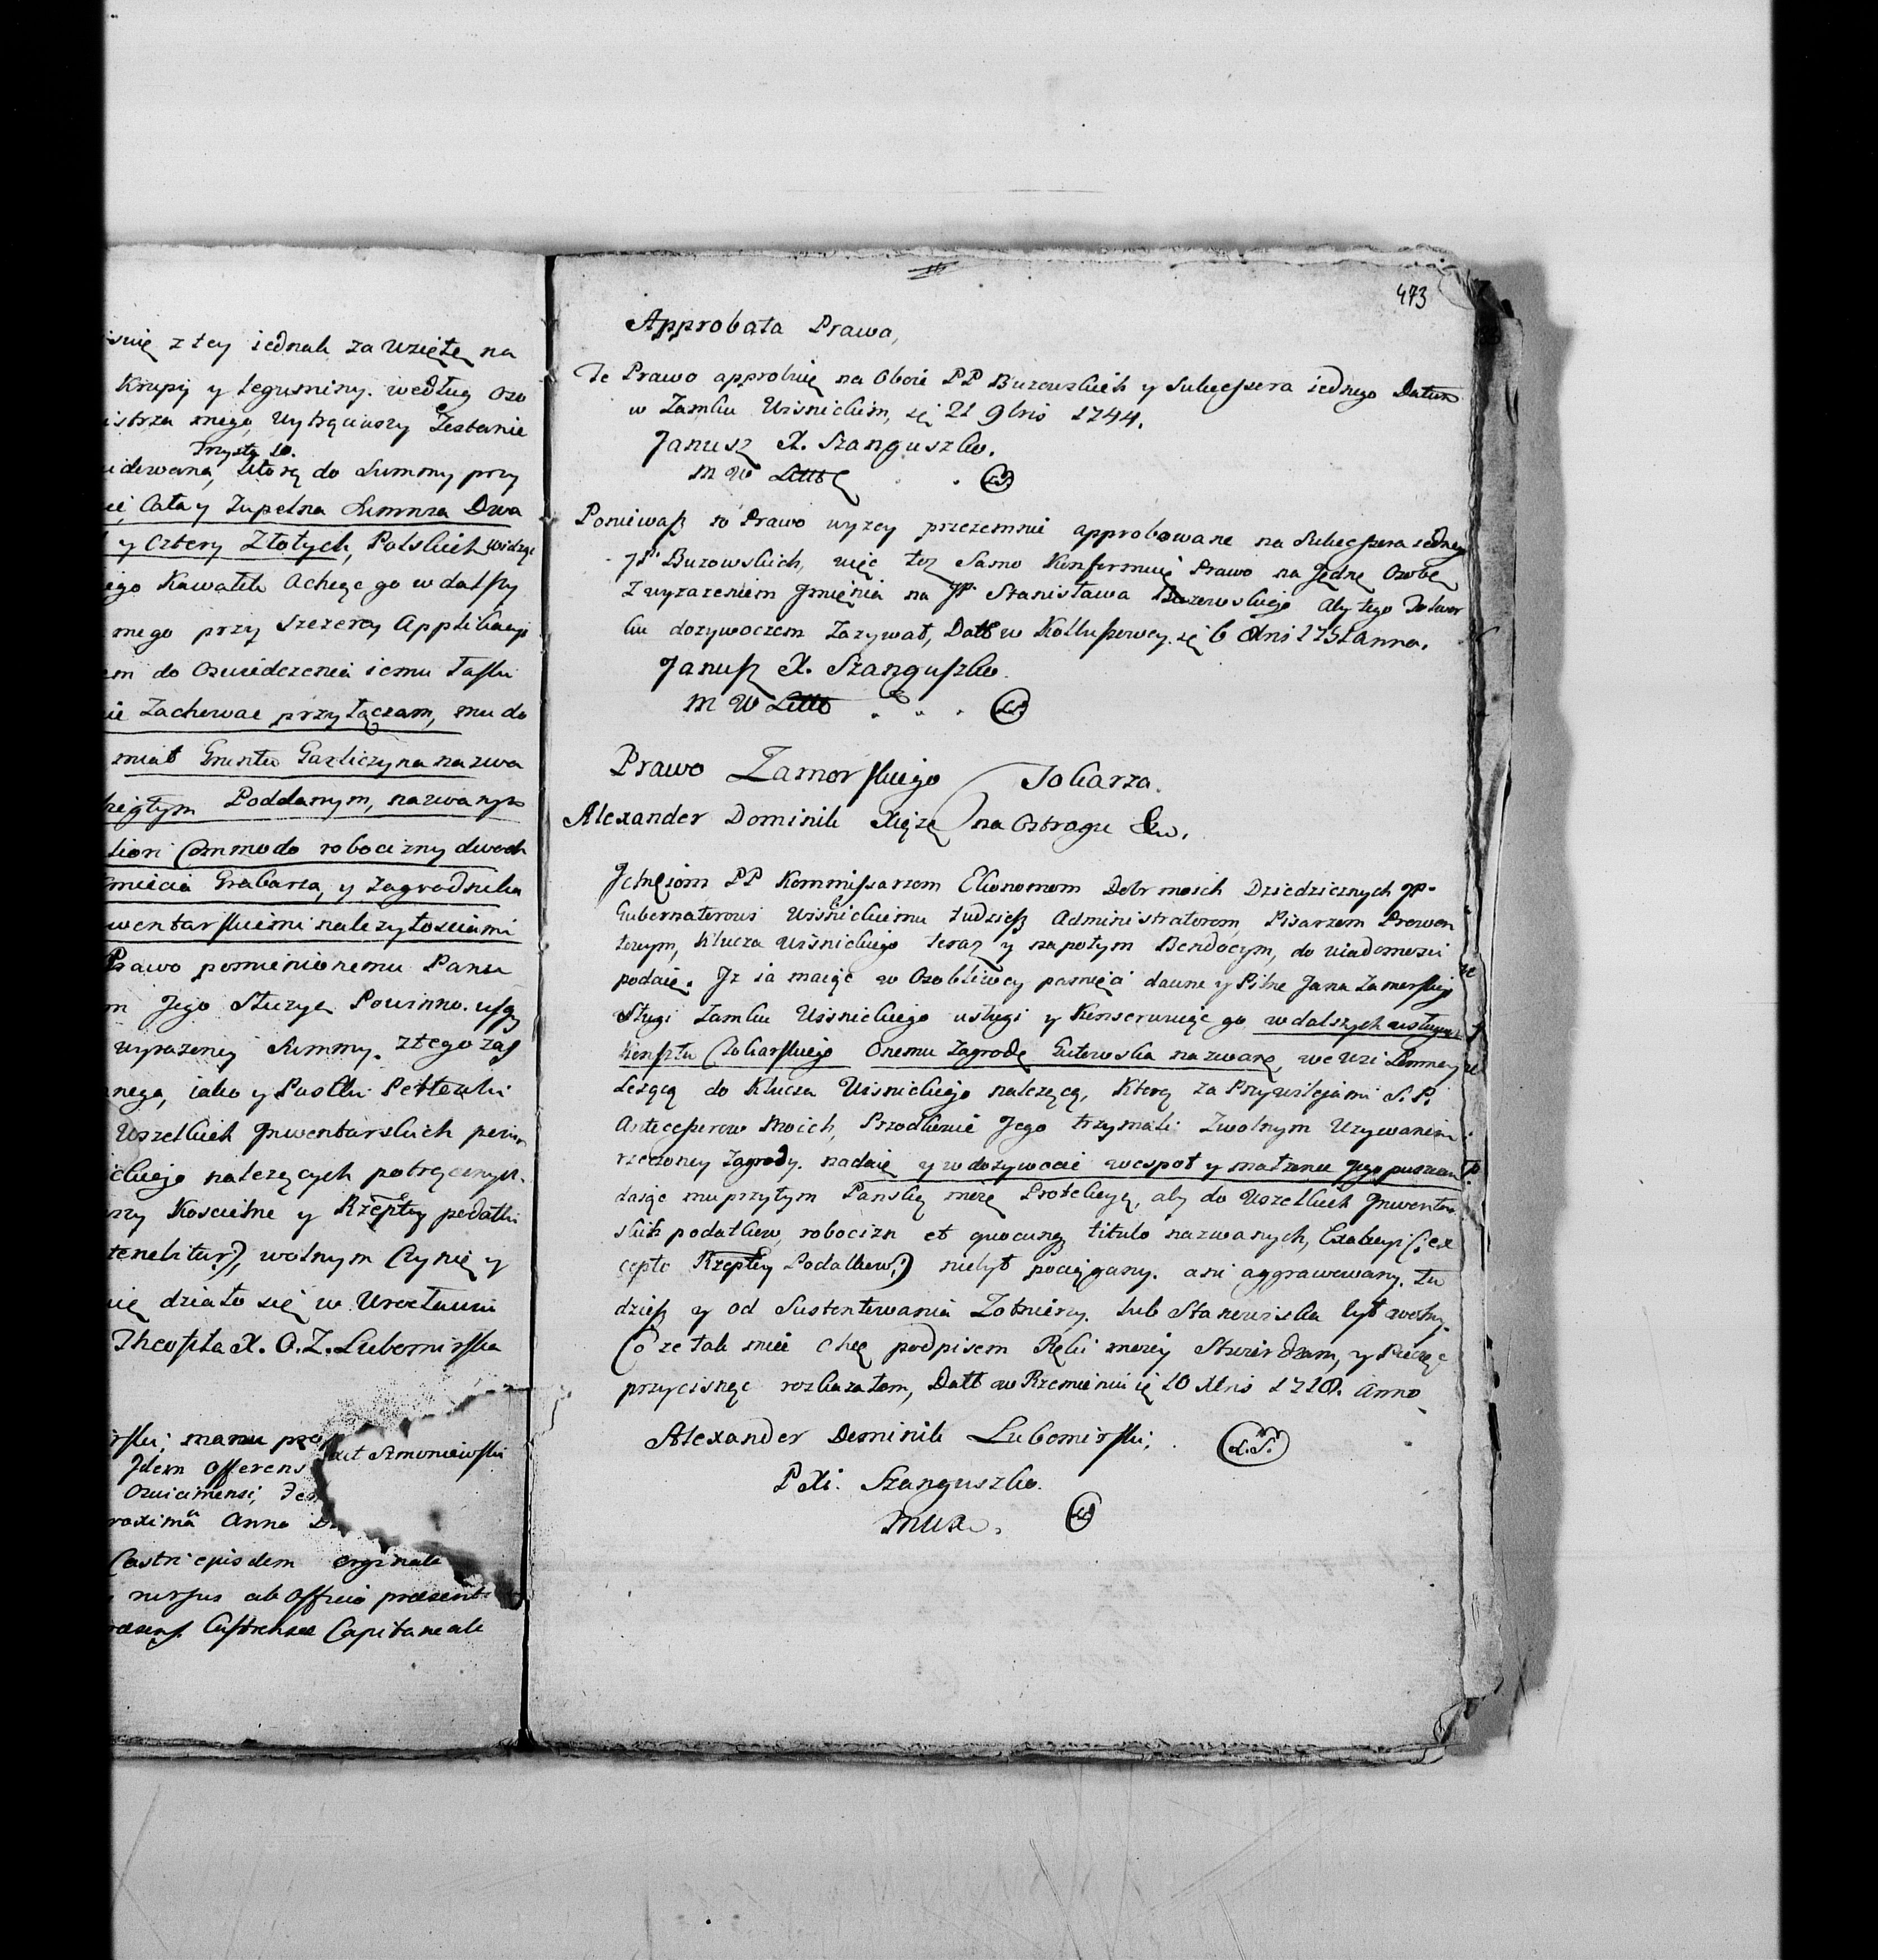 snię z tey iednak za wziętę na
Krupy y leguminy. według oso
istrza mego, wytrąciwszy Lezbenie
Trysta 10.
idowaną, ktorą do Summy przy
Cała y Zupełna Summa Dwa
y Cztery Złotych, Polskich widzę
ego Kawałek a chcąc go w dalszy
mego przy Szczerey Applikacyi
em do oswiedczenia iemu łaski
ie Zachować przyłączam, mu do
miał Gruntu Garliczyna nazwa
Poddanym, nazwanym
tiori Commodo robocizny dwoch
Kmiecia Grabarza, y Zagrodnika
wentarskiemi należytosciami
Prawo pomienionemu Panu
m Jego Służyć Powinno.
wyrażoney Summy. z tego zas
nego, iako y Pustki
Wszelkich Inwentarskich
ckiego należących potrącenych.
Koscielne y Rzeptey podatki
tenebitur), wolnym Czynię y
nię działo się w Wrocławiu
Theofila X. O. Z. Lubomirska
rski; manu pro
Szmoniewski
Idem offerens
Oswiecimensi,
roximâ Anno
Castri eiusdem orginale
rursus ab Officio præsenti
Castrense Capitaneale
473
Approbata Prawa,
Te Prawo approbuię na Oboie PP Buzowskich y Sukcessora iednego Datum
w Zamku Wisnickim, d 21 9bris 1744.
Janusz X. Szanguszko.
M W Litt LS
Poniewasz to Prawo wyzey przezemnie approbowane na Sukcessora iednego
JP Buzowskich, więc toz Samo Konfirmuię Prawo na Jednę Osobę
Z wyrazeniem Jmięnia na JP. Stanisława Buzowskiego aby tego Folwar
ku dozywociem Zazywał, Datt w Kolbuszowey d 6 1751 anno.
Janusz X. Szanguszko.
M W Litt LS
Prawo Zamorskiego Tokarza.
Alexander Dominik Xiążę na Ostrogu &c.
Ichmciom PP Kommissarzom Ekonomom Dobr moich Dziedzicznych JP.
Gubernatorowi Wisnickiemu tudziesz Administratorom, Pisarzom Prowen
towym, Klucza Wisnickiego teraz y napotym Bendącym, do wiadomosci
podaię. Jz ia maiąc w Osobliwey pamięci dawne y Pilne Jana Zamorskiego
Sługi Zamku Wisnickiego usługi y Konserwuiąc go w dalszych usługach
Konsztu Tokarskiego Onemu Zagrodę Gutowska nazwaną, we Wsi
Leżącą do Klucza Wisnickiego należącą, Ktorą za Przywilejami S. P.
Antecessorow Moich, Przodkowie Jego trzymali Zwolnym Uzywaniem
rzeczoney Zagrody. nadaię y w dożywocie wespoł y małżonce Jego puszczam
daiąc mu przytym Panską moię Protekcyą, aby do Wszelkich Inwentar
skich podatkow, robocizn et quocunq titulo nazwanych, Exakcyi (:ex
cepto Rzeptey Podatkow:) niebył pociągany. ani aggrawowany. tu
dziesz y od Sustentowania Zołnierzy. lub Stanowiska był wolny.
Co ze tak mieć Chcę podpisem Ręki moiey Stwierdzam, y Pieczęć
przycisnąć rozkazałem, Datt w Rzemieniu d 10 Xbris 1718. anno
Alexander Dominik Lubomirski; L.S.
P Xi. Szanguszko.
LS